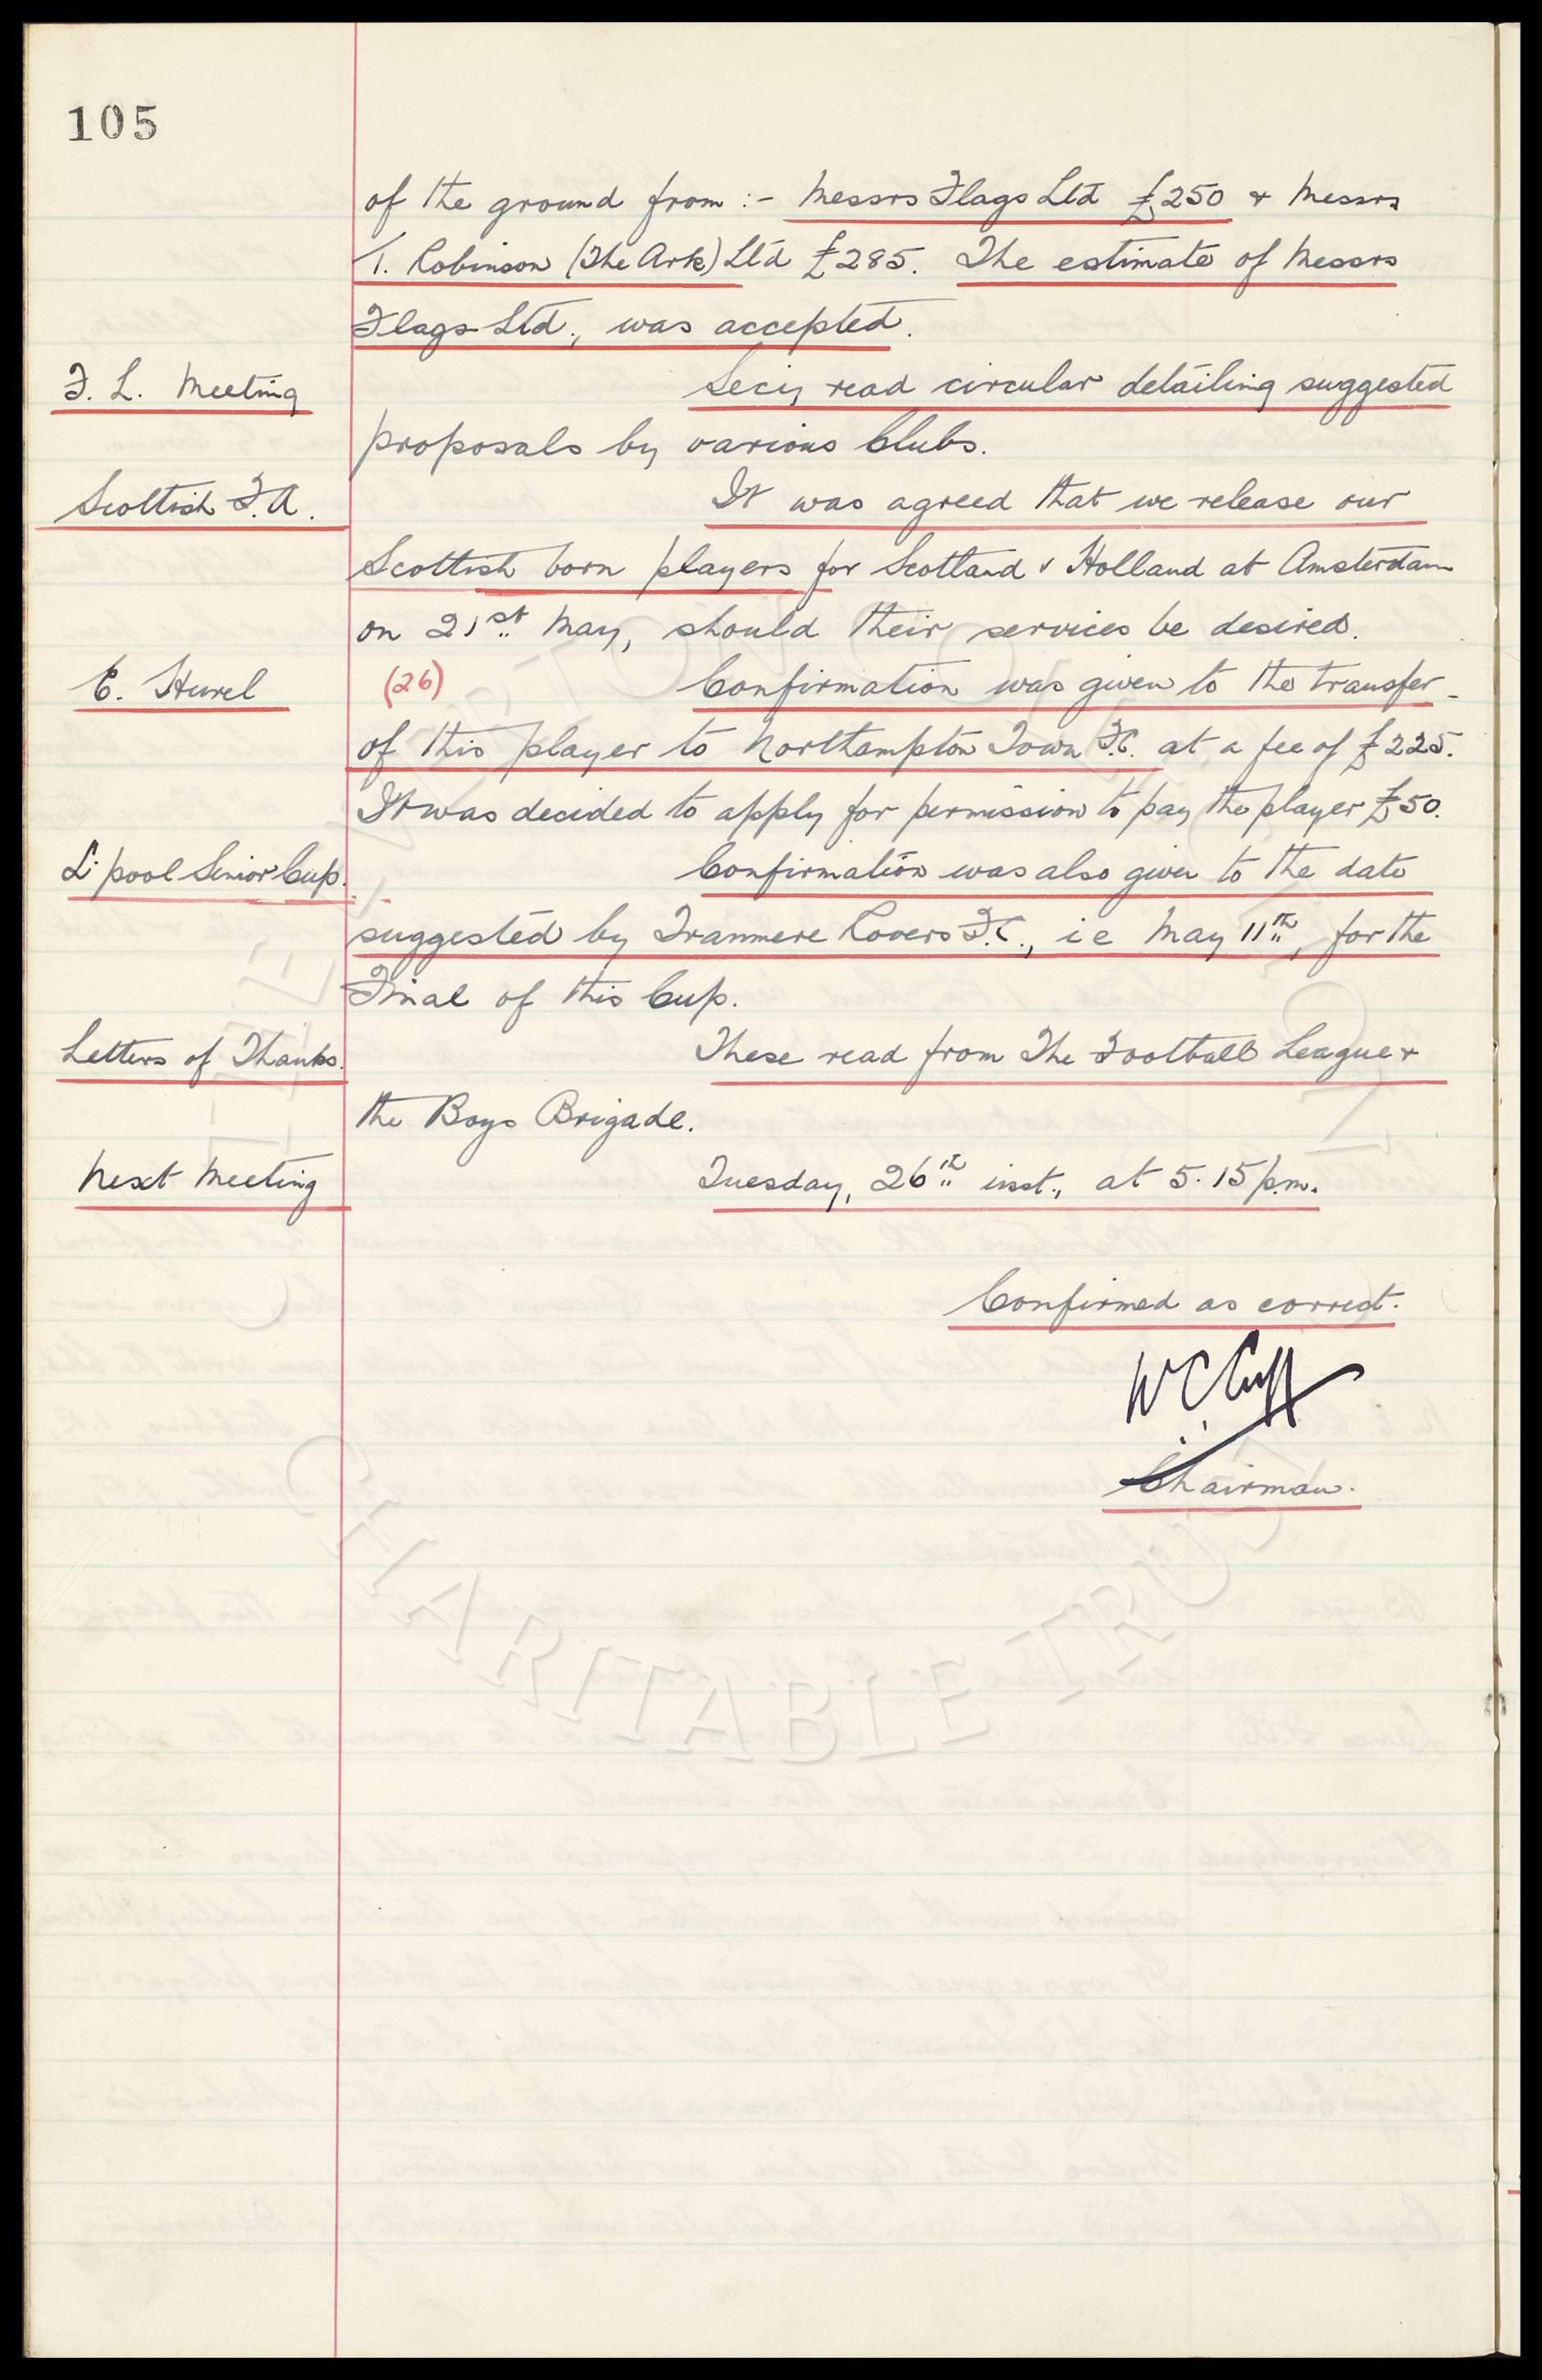 105
of the ground from :- Messrs Flags Ltd £250 & Messrs
T. Robinson (The Ark) Ltd £285. The estimate of Messrs
Flags Ltd., was accepted.
F. L. Meeting
Secy read circular detailing suggested
proposals by various Clubs.
Scottish F.A.
It was agreed that we release our
Scottish born players for Scotland v Holland at Amsterdam
on 21st May, should their services be desired.
E. Hurel (26) Confirmation was given to the transfer
of this player to Northampton Town F.C. at a fee of £225.
It was decided to apply for permission to pay the player £50.
L'pool Senior Cup.
Confirmation was also given to the date
suggested by Tranmere Rovers F.C., i e May 11th, for the
Final of this Cup.
Letters of Thanks.
These read from The Football League &
the Boys Brigade.
Next Meeting
Tuesday, 26th inst., at 5.15 p.m.
Confirmed as correct.
W C Cuff
Chairman.
CHARITABLE TRUST